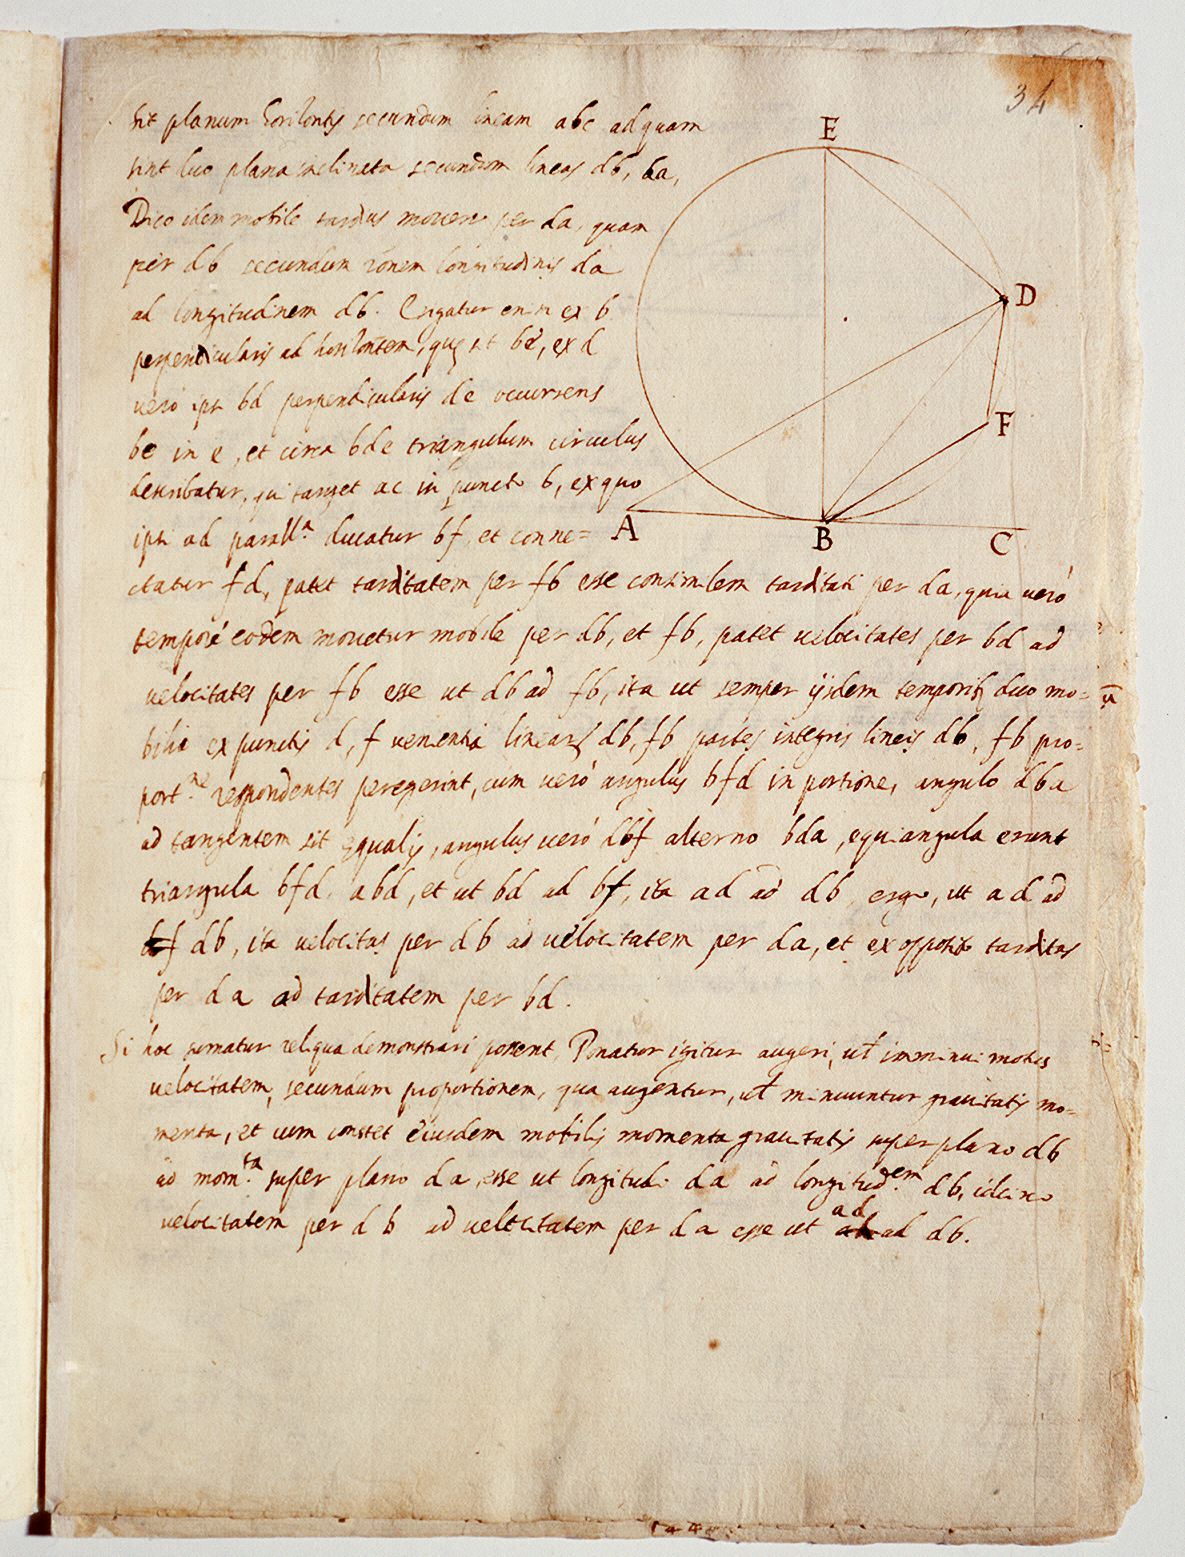 34
Sit planum horizontis secundum lineam abc ad quam
sint duo plana inclinata secundum lineas db, ba,
Dico idem mobile tardius moveri per da, quam
per db secundum rōnem longitudinis da
ad longitudinem db. Erigatur enim ex b
perpendicularis ad horizontem, quę sit be, ex d
vero ipsi bd perpendicularis de occurrens
be in e, et circa bde triangulum circulus
describatur, qui tanget ac in puncto b, ex quo
ipsi ad parall.ª ducatur bf, et conne=
ctatur fd, patet tarditatem per fb esse consimilem tarditati per da, quia verò
tempore eodem movetur mobile per db, et fb, patet velocitates per bd ad
velocitates per fb esse ut db ad fb, ita ut semper ijsdem temporib. duo mo=
bilia ex punctis d, f venientia linearū db, fb partes integris lineis db, fb pro=
port.ne respondentes peregerint, cum verò angulus bfd in portione, angulo dba
ad tangentem sit ęqualis, angulus verò dbf alterno bda, equiangula erunt
triangula bfd, abd, et ut bd ad bf, ita ad ad db, ergo, ut ad ad
bf db, ita velocitas per db ad velocitatem per da, et ex opposito tarditas
per da ad tarditatem per bd.
Si hoc sumatur reliqua demonstrari possent, Ponatur igitur augeri, ut imminui motus
velocitatem, secundum proportionem, qua augentur, ut minuuntur gravitatis mo=
menta, et cum constet eiusdem mobilis momenta gravitatis super plano db
ad mom.ta super plano da, esse ut longitudo da ad longitud.em db, idcirco
velocitatem per db ad velocitatem per da esse ut ad ad db.
E
D
F
A
B
C